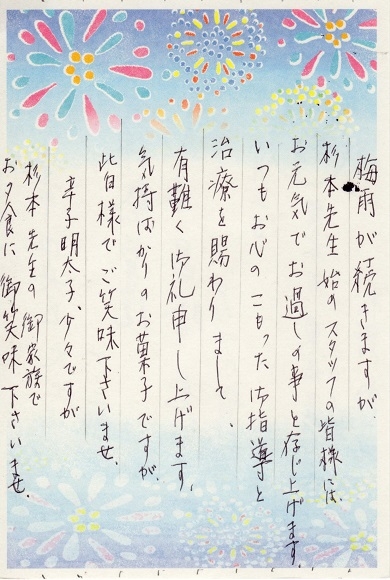 梅雨が続きますが
杉本先生始めスタッフの皆様には
お元気でお過しの事と存じ上げます。
いつもお心のこもった御指導と
治療を賜わりまして、
有難く御礼申し上げます。
気持ばかりのお菓子ですが、
皆様でご笑味下さいませ。
辛子明太子、少々ですが
杉本先生の御家族で
お夕食に御笑味下さいませ。